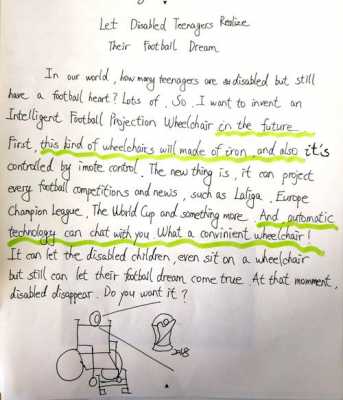 Let Disabled Teenagers Realize
Their Football Dream
In our world, how many teenagers are disabled but still
have a football heart? Lots of. So, I want to invent an
Intelligent Football Projection Wheelchair in the future.
First, this kind of wheelchairs will made of iron, and also it's
controlled by imote control. The new thing is, it can project
every football competitions and news, such as Laliga, Europe
Champion League, The World Cup and something more. And automatic
technology can chat with you. What a convinient wheelchair!
It can let the disabled children, even sit on a wheelchair
but still can let their football dream come true. At that momment,
disabled disappear. Do you want it?
2018